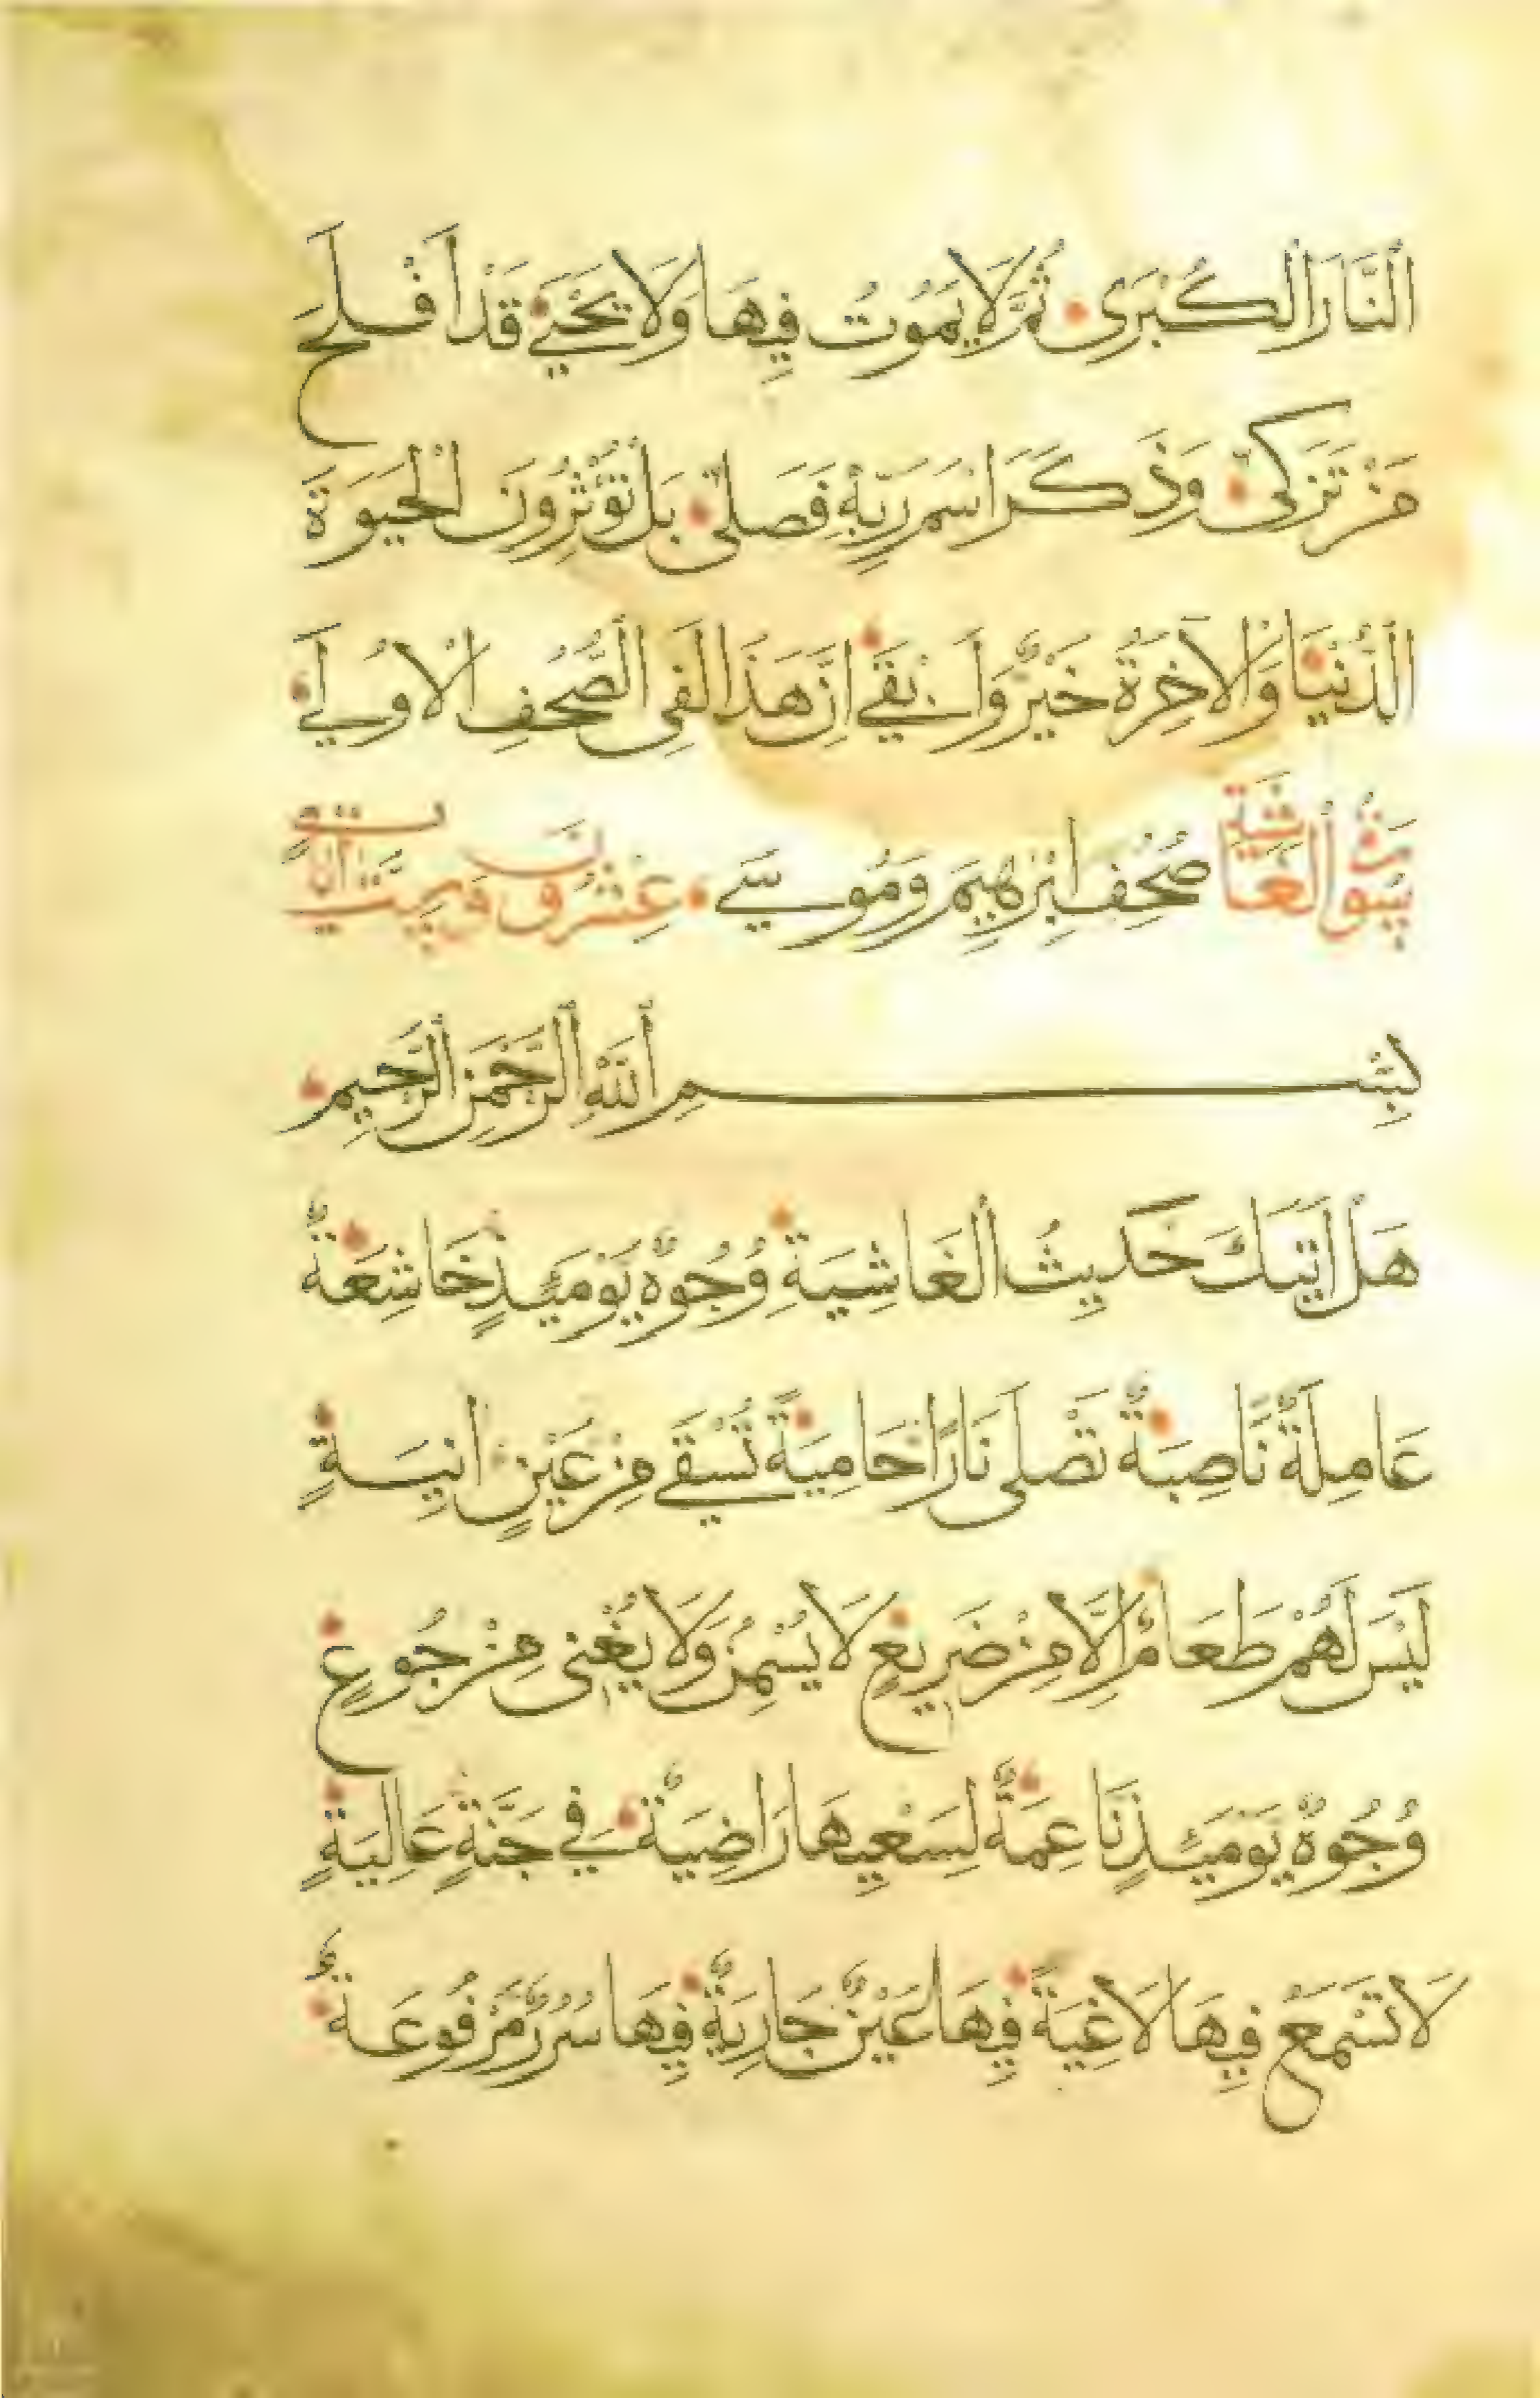 ٱلنَّارَ ٱلْكُبْرَى ثُمَّ لَا يَمُوتُ فِيهَا وَلَا يَحْيَى قَدْ أَفْلَحَ
مَنْ تَزَكَّى وَذَكَرَ اسْمَ رَبِّهِ فَصَلَّى بَلْ تُؤْثِرُونَ الْحَيَوةَ
الدُّنْيَا وَالْآخِرَةُ خَيْرٌ وَأَبْقَى إِنَّ هَذَا لَفِى الصُّحُفِ الْأُولَى
سورة الغاشية صُحُفِ إِبْرَهِيمَ وَمُوسَى عشرون وهى مكية
بِسْمِ ٱللَّهِ ٱلرَّحْمَنِ ٱلرَّحِيمِ
هَلْ أَتَيكَ حَدِيثُ ٱلْغَاشِيَةِ وُجُوهٌ يَوْمَئِذٍ خَاشِعَةٌ
عَامِلَةٌ نَاصِبَةٌ تَصْلَى نَارًا حَامِيَةً تُسْقَى مِنْ عَيْنٍ آنِيَةٍ
لَيْسَ لَهُمْ طَعَامٌ إِلَّا مِنْ ضَرِيعٍ لَا يُسْمِنُ وَلَا يُغْنِى مِنْ جُوعٍ
وُجُوهٌ يَوْمَئِذٍ نَاعِمَةٌ لِسَعْيِهَا رَاضِيَةٌ فِي جَنَّةٍ عَالِيَةٍ
لَا تَسْمَعُ فِيهَا لَاغِيَةً فِيهَا عَيْنٌ جَارِيَةٌ فِيهَا سُرُرٌ مَرْفُوعَةٌ